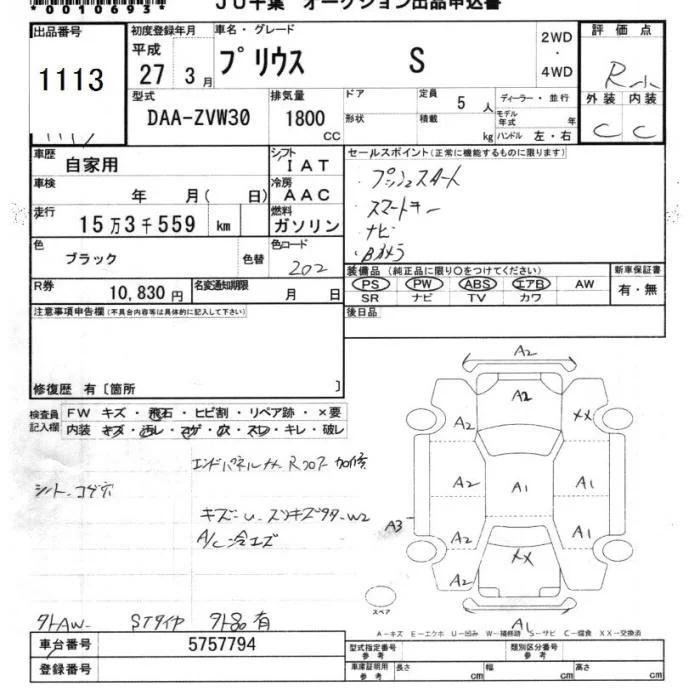 *0010693*
JU千葉 オークション出品申込書
出品番号 初度登録年月 車名・グレード 2WD・4WD 評価点
1113 平成27年3月 プリウス S R小
外装 内装
C C
型式 排気量 ドア 定員 5人 ディーラー・並行
DAA-ZVW30 1800cc 形状 積載 kg モデル年式 年 ハンドル 左・右
車歴 自家用 シフト IAT セールスポイント(正常に機能するものに限ります)
車検 年 月( 日) 冷房 AAC ・プッシュスタート
走行 15万3千559 km 燃料 ガソリン ・スマートキー
・ナビ
・Bカメラ
色 ブラック 色替 色コード 202
装備品(純正品に限り○をつけてください) 新車保証書
PS PW ABS エアB AW 有・無
SR ナビ TV カワ
R券 10,830円 名変通知期限 月 日
後日品
注意事項申告欄(不具合内容等は具体的に記入して下さい)
修復歴 有〔箇所 〕
検査員記入欄 FW キズ・飛石・ヒビ割・リペア跡・×要
内装 キズ・汚レ・コゲ・穴・スレ・キレ・破レ
シートコゲ穴
キズ-U-スリキズ多々-W2
A/C冷エズ
外AW- STタイヤ 外品有
A2
A2
A2 XX
A2 A1 A1
A3 A2 A1
XX
A2
A1
スペア
A-キズ E-エクボ U-凹み W-補修跡 S-サビ C-腐食 XX-交換済
車台番号 5757794 型式指定番号 参考 類別区分番号 参考
登録番号 車庫証明用 参考 長さ cm 幅 cm 高さ cm